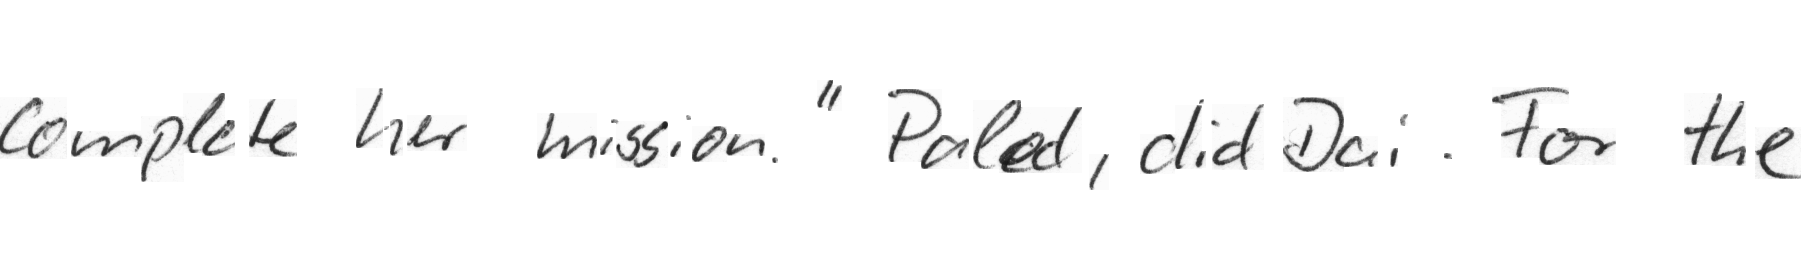 complete her mission." Paled, did Dai. For the